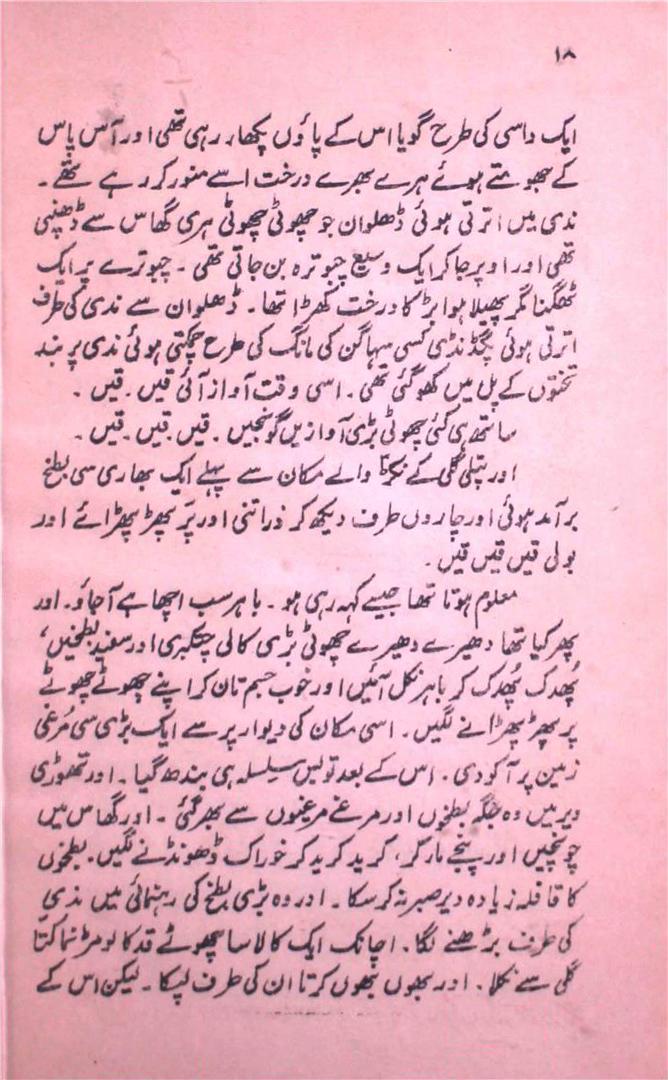 ۱۸
ایک داسی کی طرح گویا اس کے پاؤں پکھار رہی تھی اور آس پاس
کے جھومتے ہوئے ہرے بھرے درخت اسے منور کر رہے تھے ۔
ندی میں اترتی ہوئی ڈھلوان جو چھوٹی چھوٹی ہری گھاس سے ڈھنپی
تھی اور اوپر جا کر ایک وسیع چبوترہ بن جاتی تھی ۔ چبوترے پر ایک
ٹھگنا مگر پھیلا ہوا بڑ کا درخت کھڑا تھا ۔ ڈھلوان سے ندی کی طرف
اترتی ہوئی پگڈنڈی کسی سہاگن کی مانگ کی طرح چمکتی ہوئی ندی پر بنے
تختوں کے پل میں کھو گئی تھی ۔ اسی وقت آواز آئی قیں ۔ قیں ۔
ساتھ ہی کئی چھوٹی بڑی آوازیں گونجیں ۔ قیں ۔ قیں ۔ قیں ۔
اور پتلی گلی کے نکڑ والے مکان سے پہلے ایک بھاری سی بطخ
برآمد ہوئی اور چاروں طرف دیکھ کر ذرا تنی اور پَر پھڑپھڑائے اور
بولی قیں قیں قیں ۔
معلوم ہوتا تھا جیسے کہہ رہی ہو ۔ باہر سب اچھا ہے آجاؤ ۔ اور
پھر کیا تھا دھیرے دھیرے چھوٹی بڑی کالی چتکبری اور سفید بطخیں،
پُھدک پُھدک کر باہر نکل آئیں اور خوب جسم تان کر اپنے چھوٹے چھوٹے
پر پھڑپھڑانے لگیں ۔ اسی مکان کی دیوار پر سے ایک بڑی سی مُرغی
زمین پر آ کودی ۔ اس کے بعد تو بس سلسلہ ہی بندھ گیا ۔ اور تھوڑی
دیر میں وہ جگہ بطخوں اور مرغے مرغیوں سے بھر گئی ۔ اور گھاس میں
چونچیں اور پنجے مار کر، کرید کرید کر خوراک ڈھونڈنے لگیں ۔ بطخوں
کا قافلہ زیادہ دیر صبر نہ کر سکا ۔ اور وہ بڑی بطخ کی رہنمائی میں ندی
کی طرف بڑھنے لگا ۔ اچانک ایک کالا سا چھوٹے قد کا لومڑ نما کتّا
گلی سے نکلا ۔ اور بھوں بھوں کرتا ان کی طرف لپکا ۔ لیکن اس کے